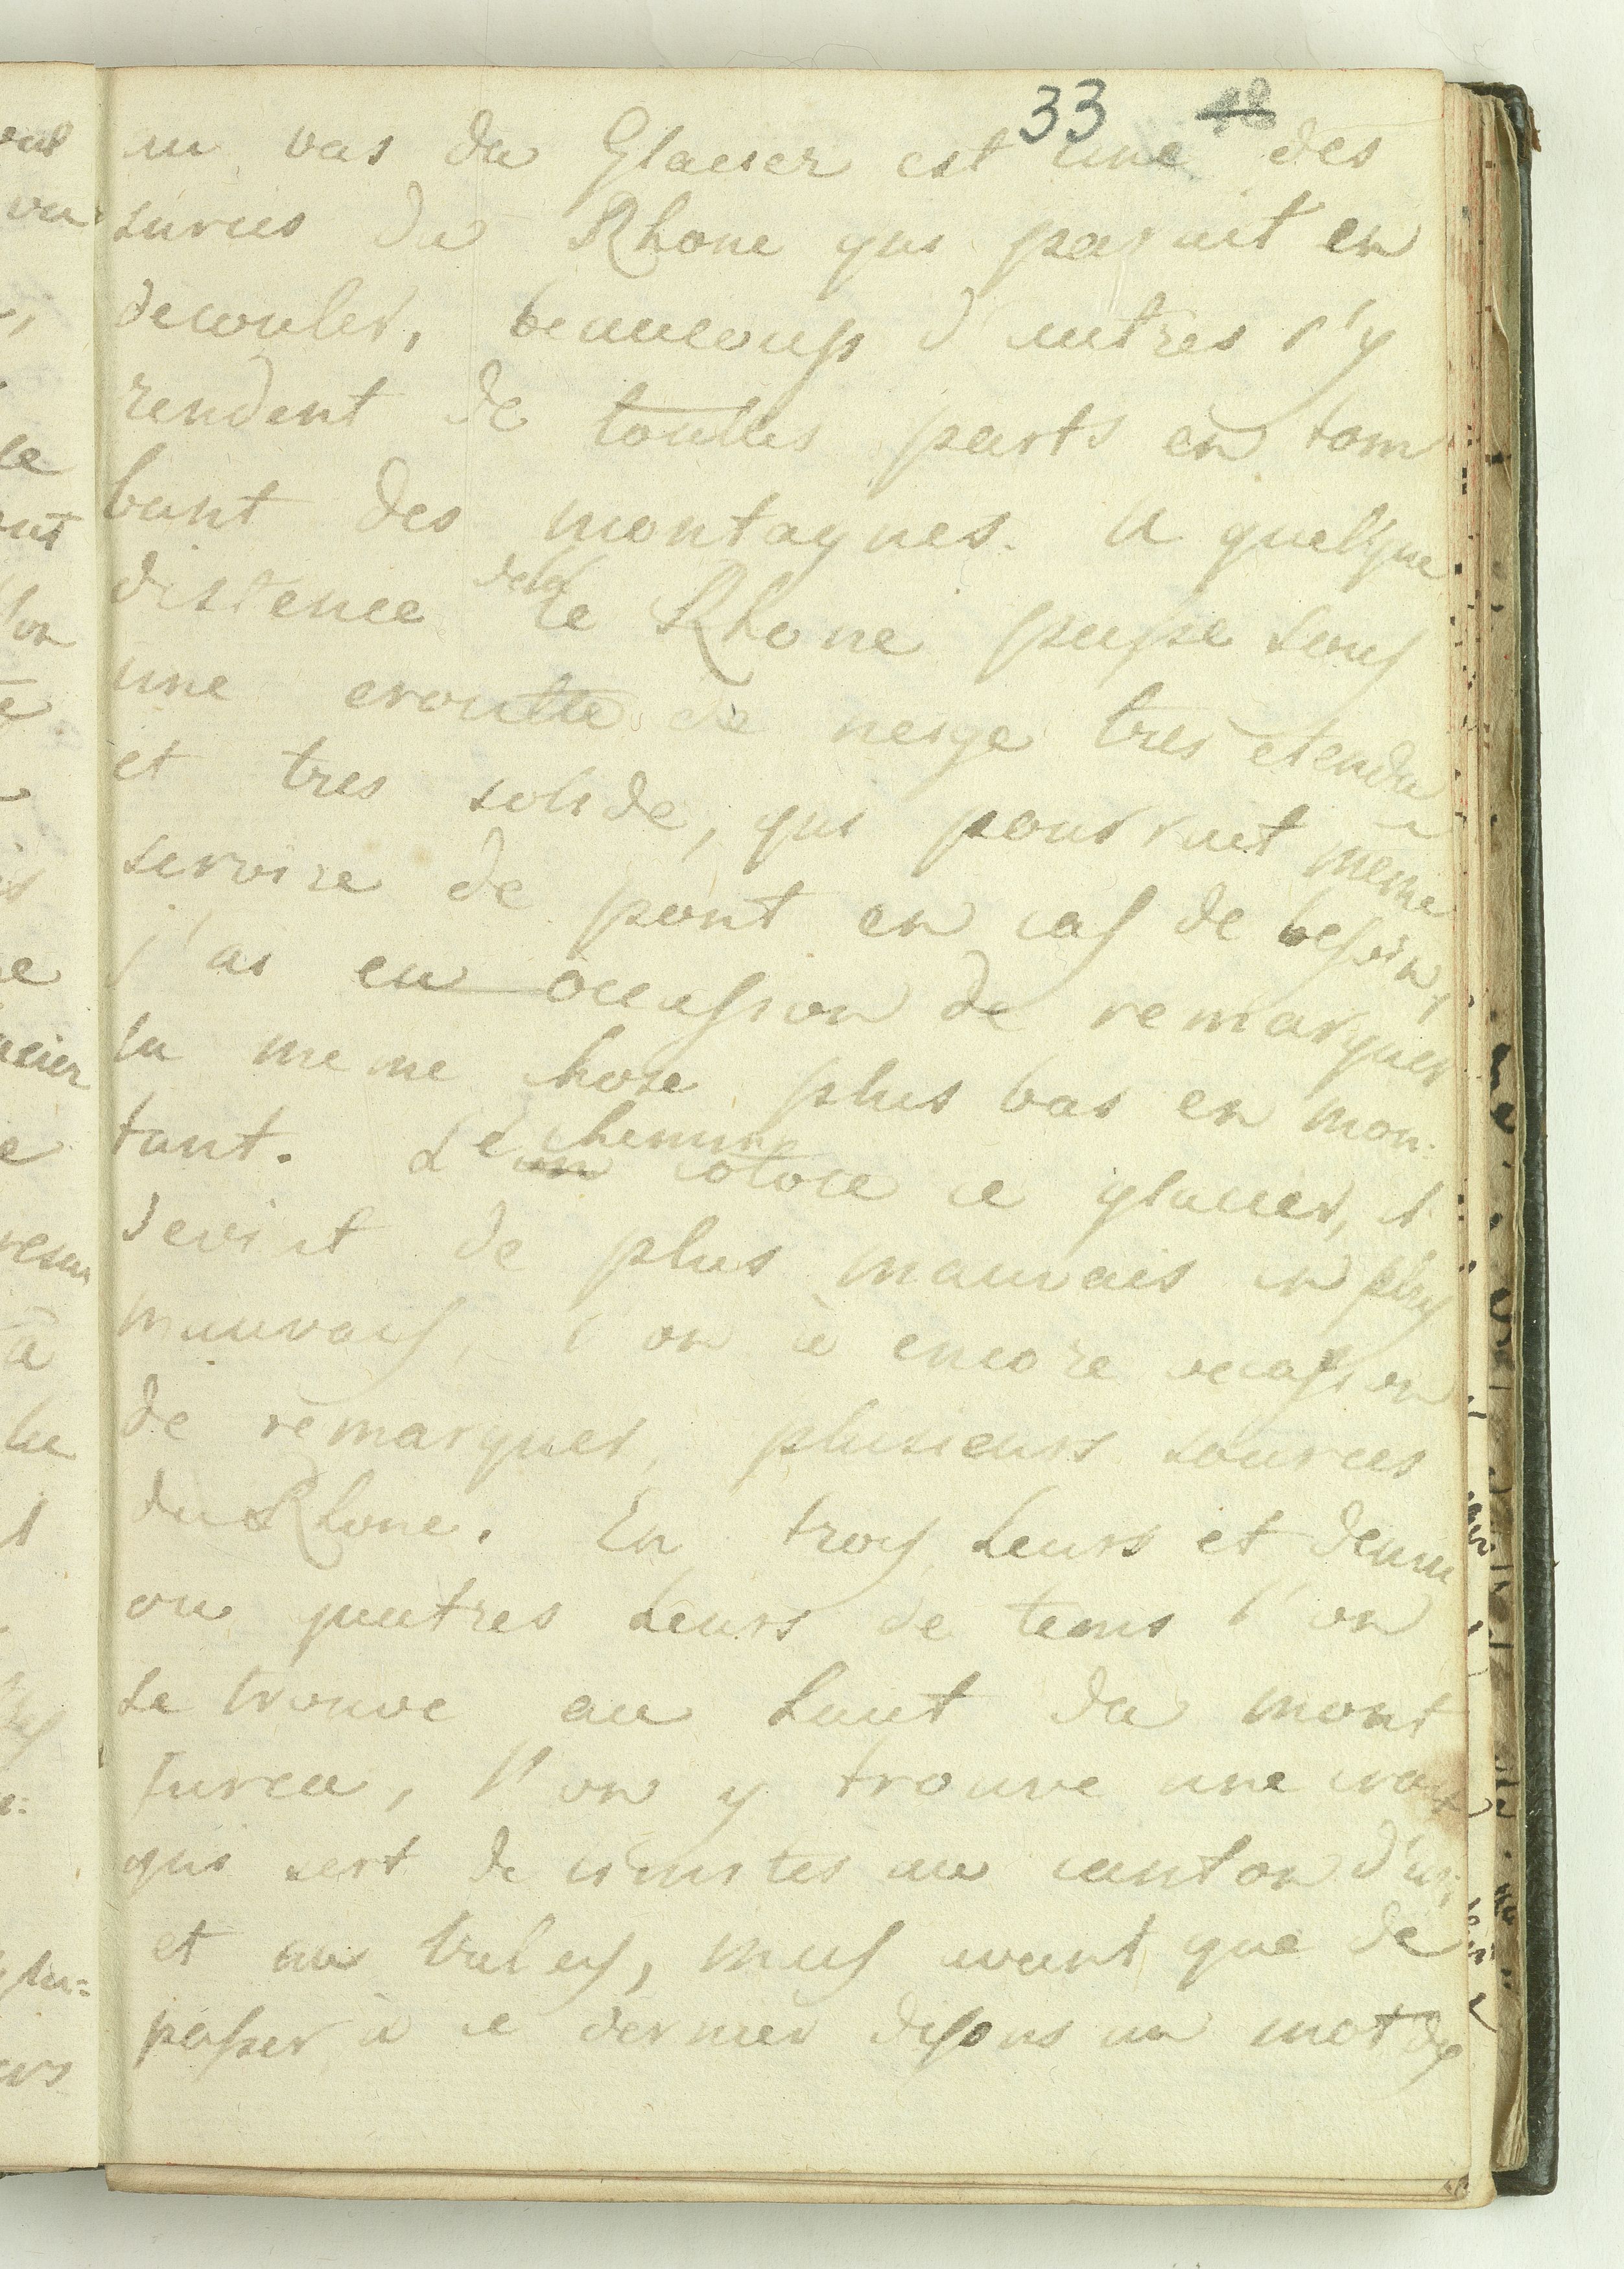 33 48
au bas du Glacier est une des
surces du Rhone qui parait en
decouler, beaucoup d'autres s'y
rendent de touttes parts en tom
bant des montagnes. A quelque
distence dela le Rhone passe sous
une croutte de neige tres etendu
et tres solide, qui pourrait même
servire de pont en cas de besoin,
j'ai eu occasion de remarquer
la meme chose plus bas en mon:
tant. Le chemin cotoie ce glacier, il
devint de plus mauvais en plus
mauvais, l'on à encore occasion
de remarquer, plusieurs sources
du Rhone. En trois heurs et demi
ou quatres heurs de tems l'on
se trouve au haut du mont
Furca, l'on y trouve une croix
qui sert de limites au canton d'uri
et au Valais, mais avant que de
passer à ce dernier disons un mot des